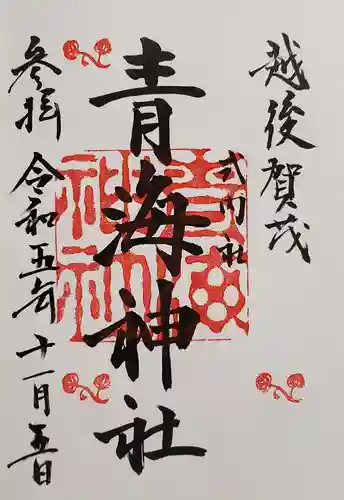 越後賀茂
式内社
青海神社
参拝 令和五年十一月五日